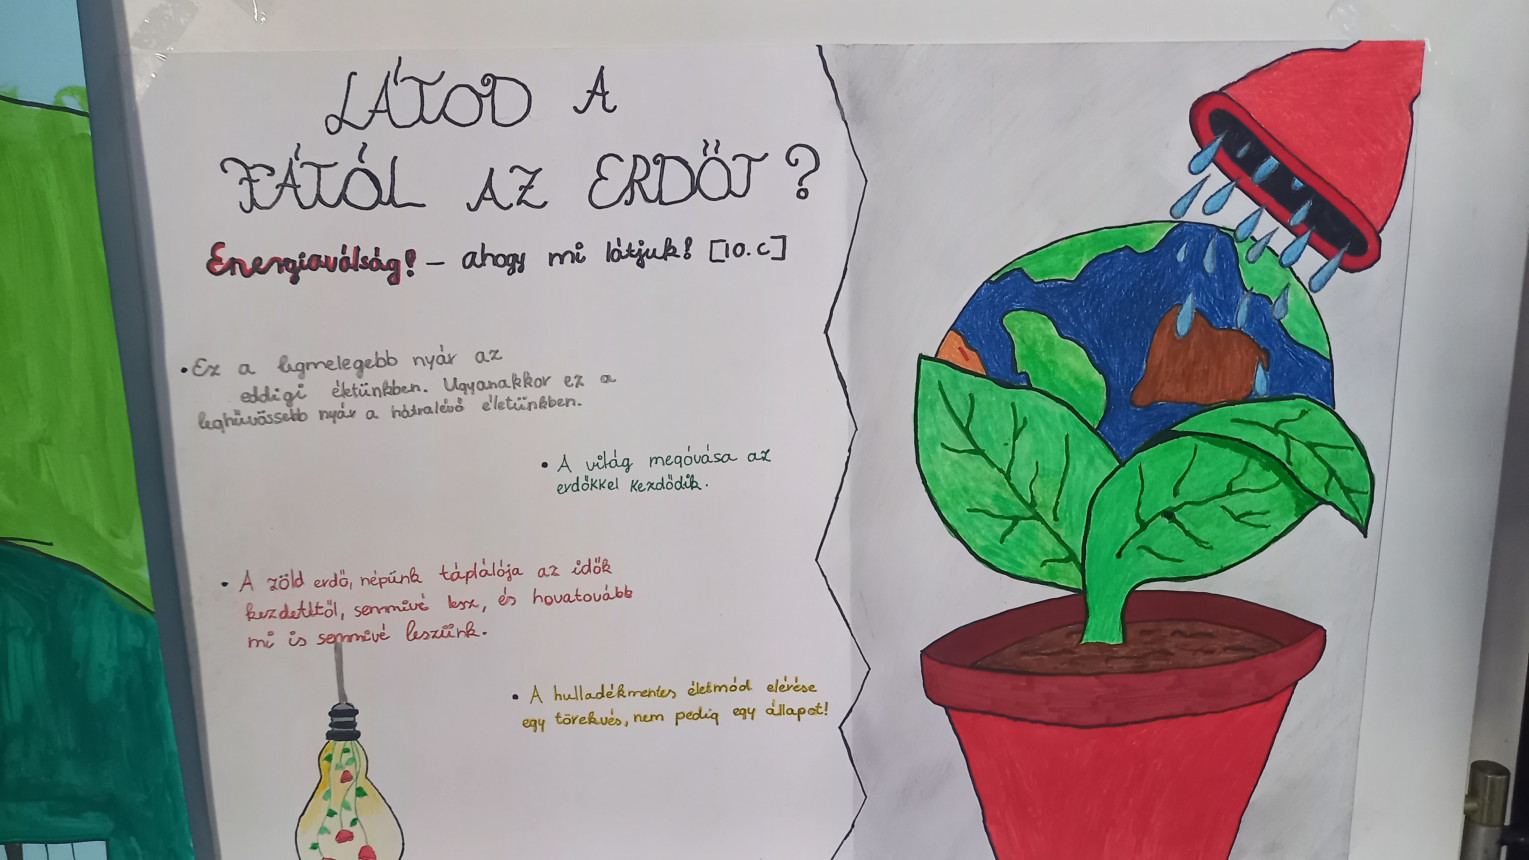 LÁTOD A
FÁTÓL AZ ERDŐT?
Energiaválság! - ahogy mi látjuk! [10.C]
• Ez a legmelegebb nyár az
eddigi életünkben. Ugyanakkor ez a
leghűvössebb nyár a hátralévő életünkben.
• A világ megóvása az
erdőkkel kezdődik.
• A zöld erdő, népünk táplálója az idők
kezdetétől, semmivé lesz, és hovatovább
mi is semmivé leszünk.
• A hulladékmentes életmód elérése
egy törekvés, nem pedig egy állapot!